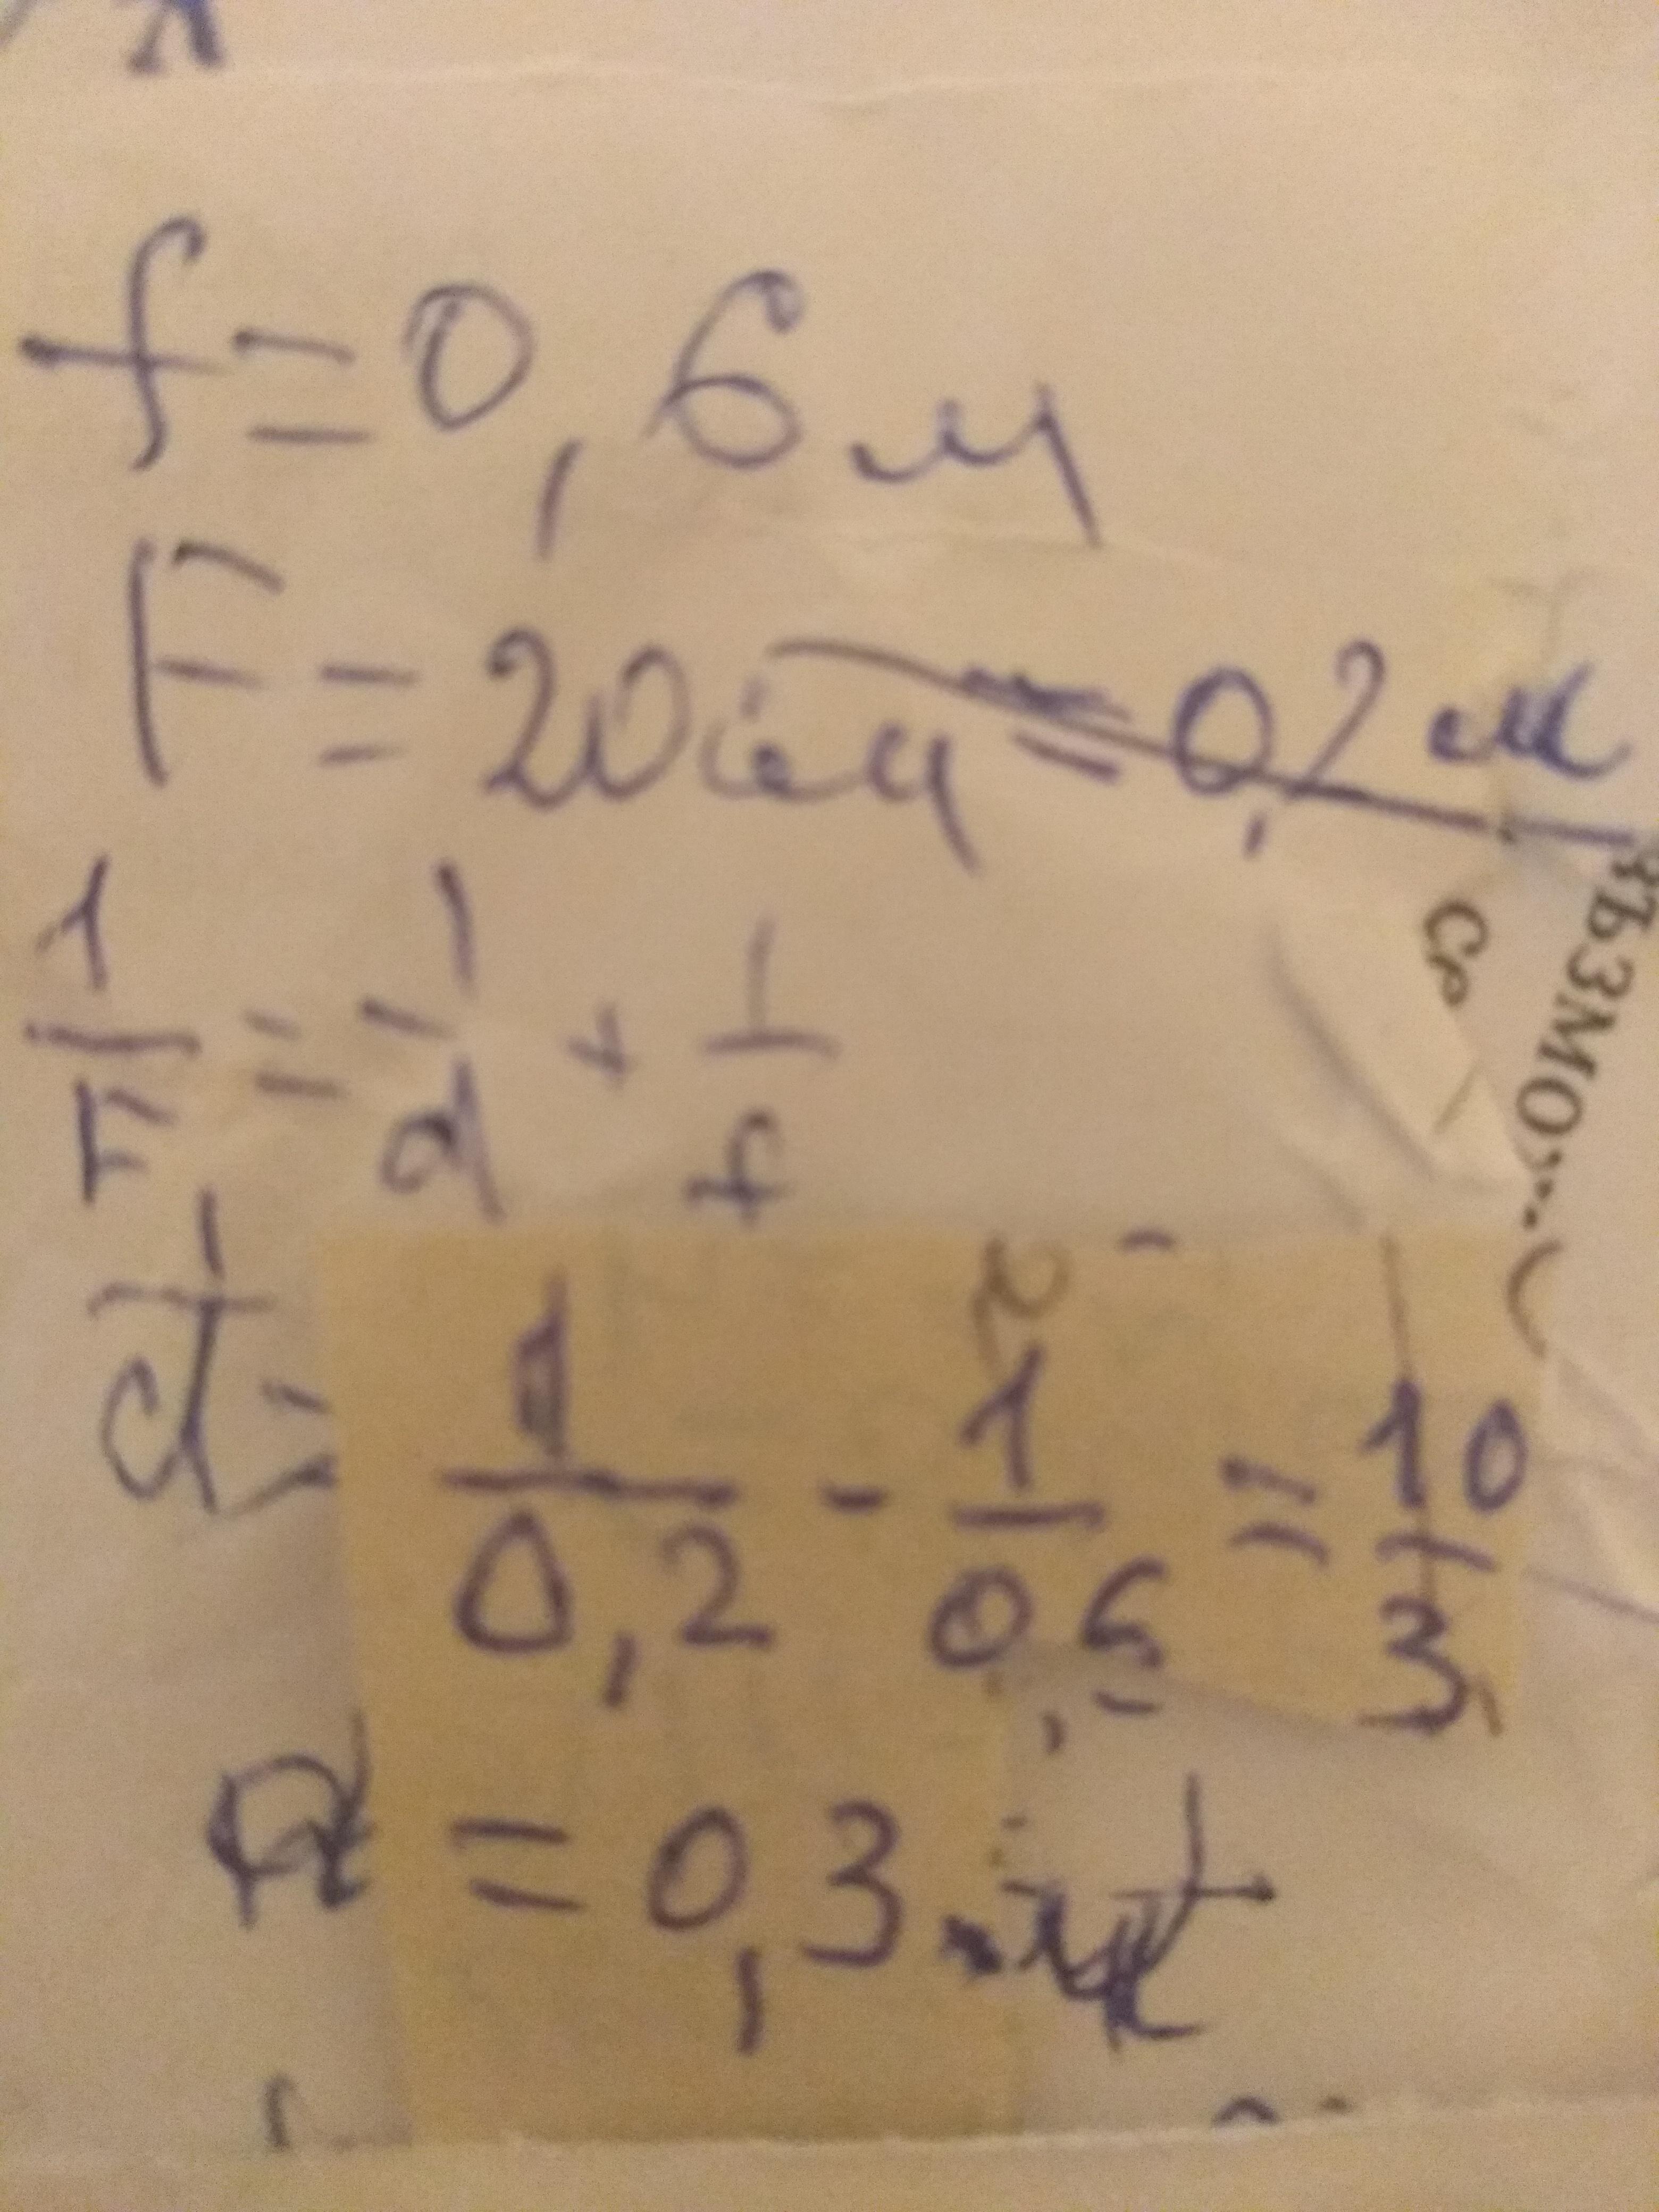 f=0,6м
F=20см=0,2м
1/F = 1/d + 1/f
1/d = 1/0,2 - 1/0,6 = 10/3
d=0,3м